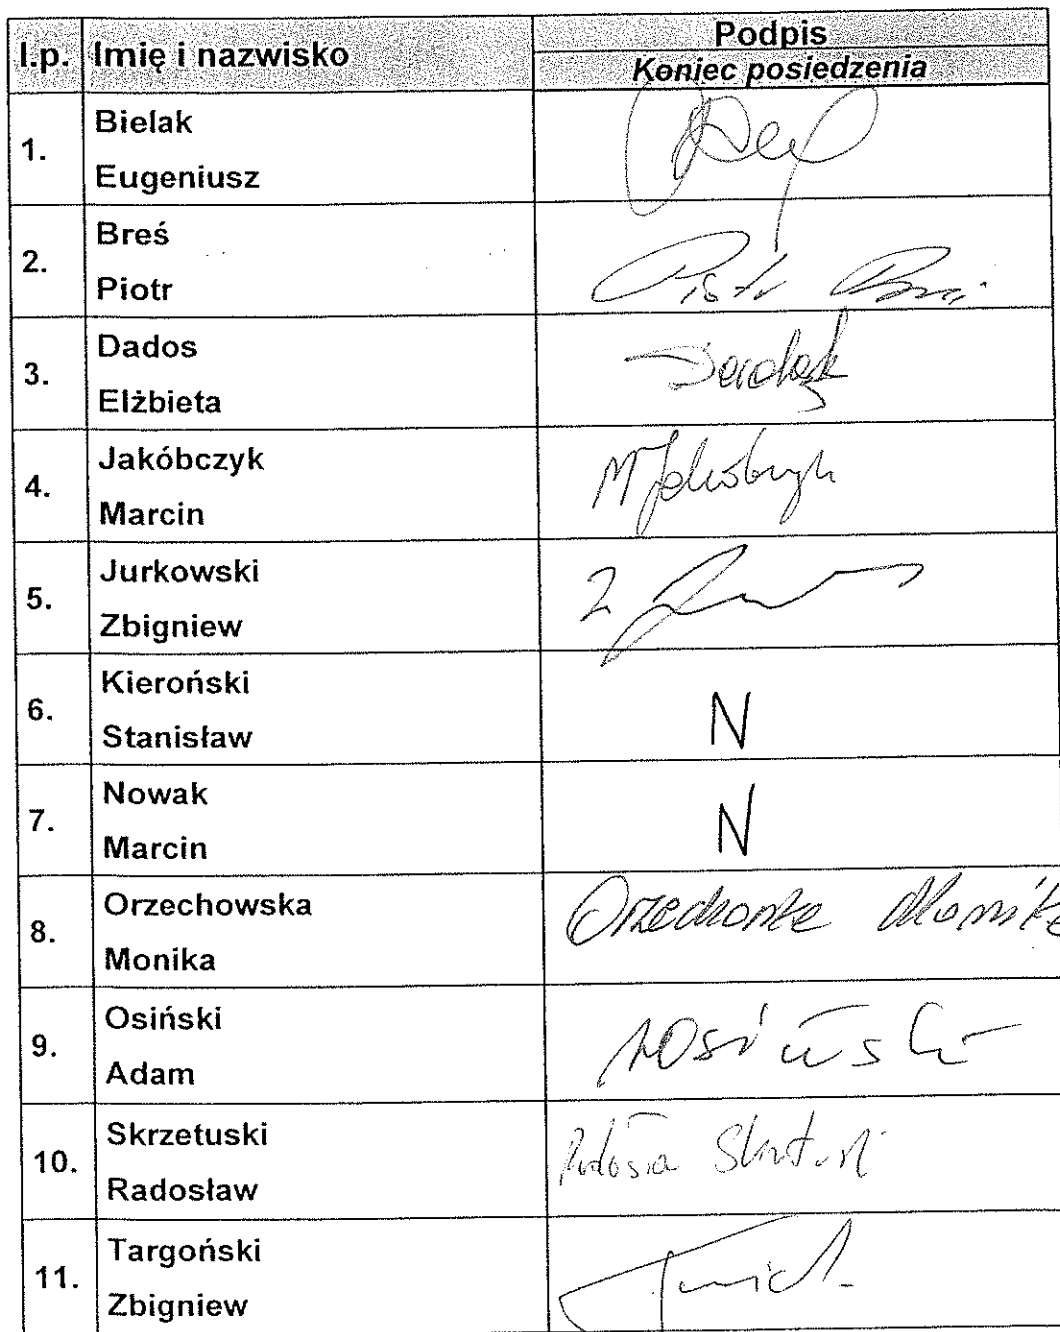 l.p. Imię i nazwisko Podpis
Koniec posiedzenia
1. Bielak
Eugeniusz
2. Breś
Piotr
Piotr
3. Dados
Elżbieta
4. Jakóbczyk
Marcin
M Jakóbczyk
5. Jurkowski
Zbigniew
Z
6. Kieroński
Stanisław
N
7. Nowak
Marcin
N
8. Orzechowska
Monika
Orzechowska Monika
9. Osiński
Adam
AOsiński
10. Skrzetuski
Radosław
11. Targoński
Zbigniew